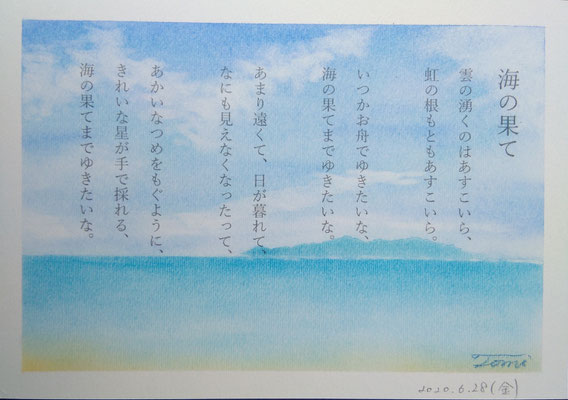 海の果て
雲の湧くのはあすこいら、
虹の根もともあすこいら。
いつかお舟でゆきたいな、
海の果てまでゆきたいな。
あまり遠くて、日が暮れて、
なにも見えなくなったって、
あかいなつめをもぐように、
きれいな星が手で採れる、
海の果てまでゆきたいな。
Tomi
2020.6.28(金)